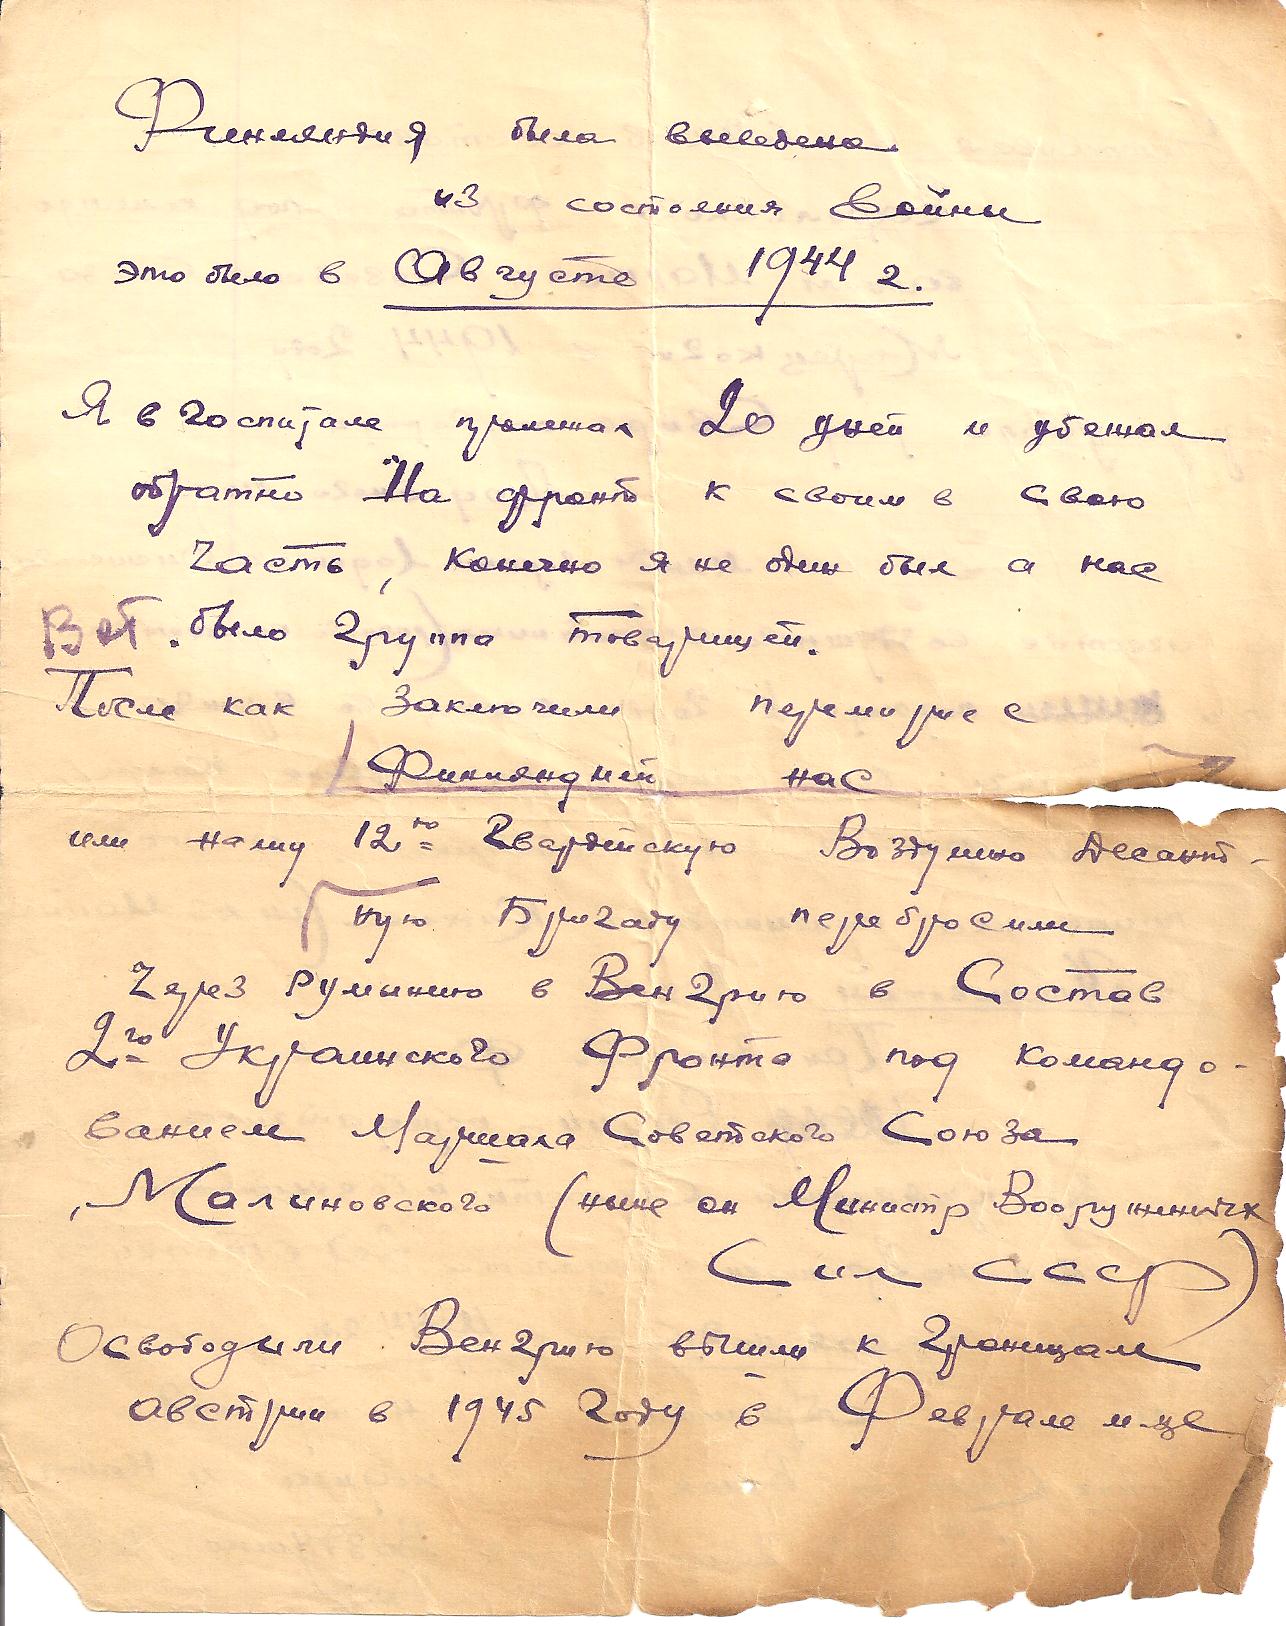 Финляндия была выведена
из состояния войны
это было в Августе 1944 г.
Я в госпитале пролежал 20 дней и убежал
обратно На фронт к своим в свою
часть, конечно я не один был а нас
Вот. было группа товарищей.
После как заключили перемирие с
Финляндией нас
или нашу 12ю Гвардейскую Воздушно Десант-
ную Бригаду перебросили
через Румынию в Венгрию в Состав
2го Украинского Фронта под командо-
ванием Маршала Советского Союза
Малиновского (ныне он Министр Вооруженных
Сил СССР)
Освободили Венгрию вышли к границам
Австрии в 1945 году в Феврале м-це